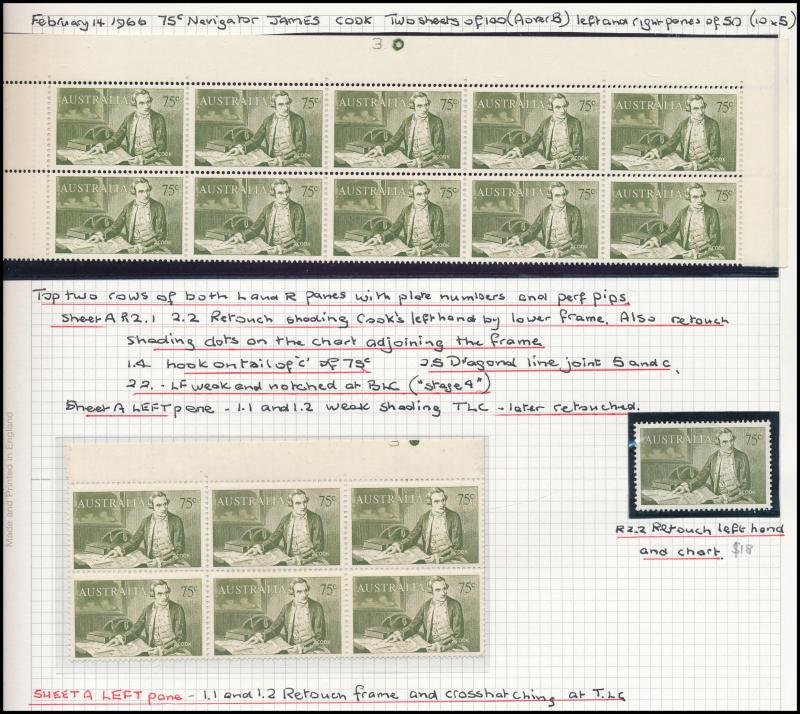 February 14 1966 75c Navigator JAMES COOK Two sheets of 100 (A over B) left and right panes of 50 (10 x 5)
3
AUSTRALIA 75c AUSTRALIA 75c AUSTRALIA 75c AUSTRALIA 75c AUSTRALIA 75c
COOK COOK COOK COOK COOK
AUSTRALIA 75c AUSTRALIA 75c AUSTRALIA 75c AUSTRALIA 75c AUSTRALIA 75c
COOK COOK COOK COOK COOK
Top two rows of both L and R panes with plate numbers and perf pips.
Sheet A R2.1 2.2 Retouch shading Cook's left hand by lower frame. Also retouch
shading dots on the chart adjoining the frame
1.4 hook on tail of 'c' of 75c 2.5 Diagonal line joint 5 and c.
2.2. - LF weak and notched at BLC ("stage 4")
Sheet A LEFT pane - 1.1 and 1.2 weak shading TLC - later retouched.
Made and Printed in England
3
AUSTRALIA 75c AUSTRALIA 75c AUSTRALIA 75c
COOK COOK COOK
AUSTRALIA 75c AUSTRALIA 75c AUSTRALIA 75c
COOK COOK COOK
AUSTRALIA 75c
COOK
R2.2 Retouch left hand
and chart. $18
SHEET A LEFT pane - 1.1 and 1.2 Retouch frame and crosshatching at T.LC